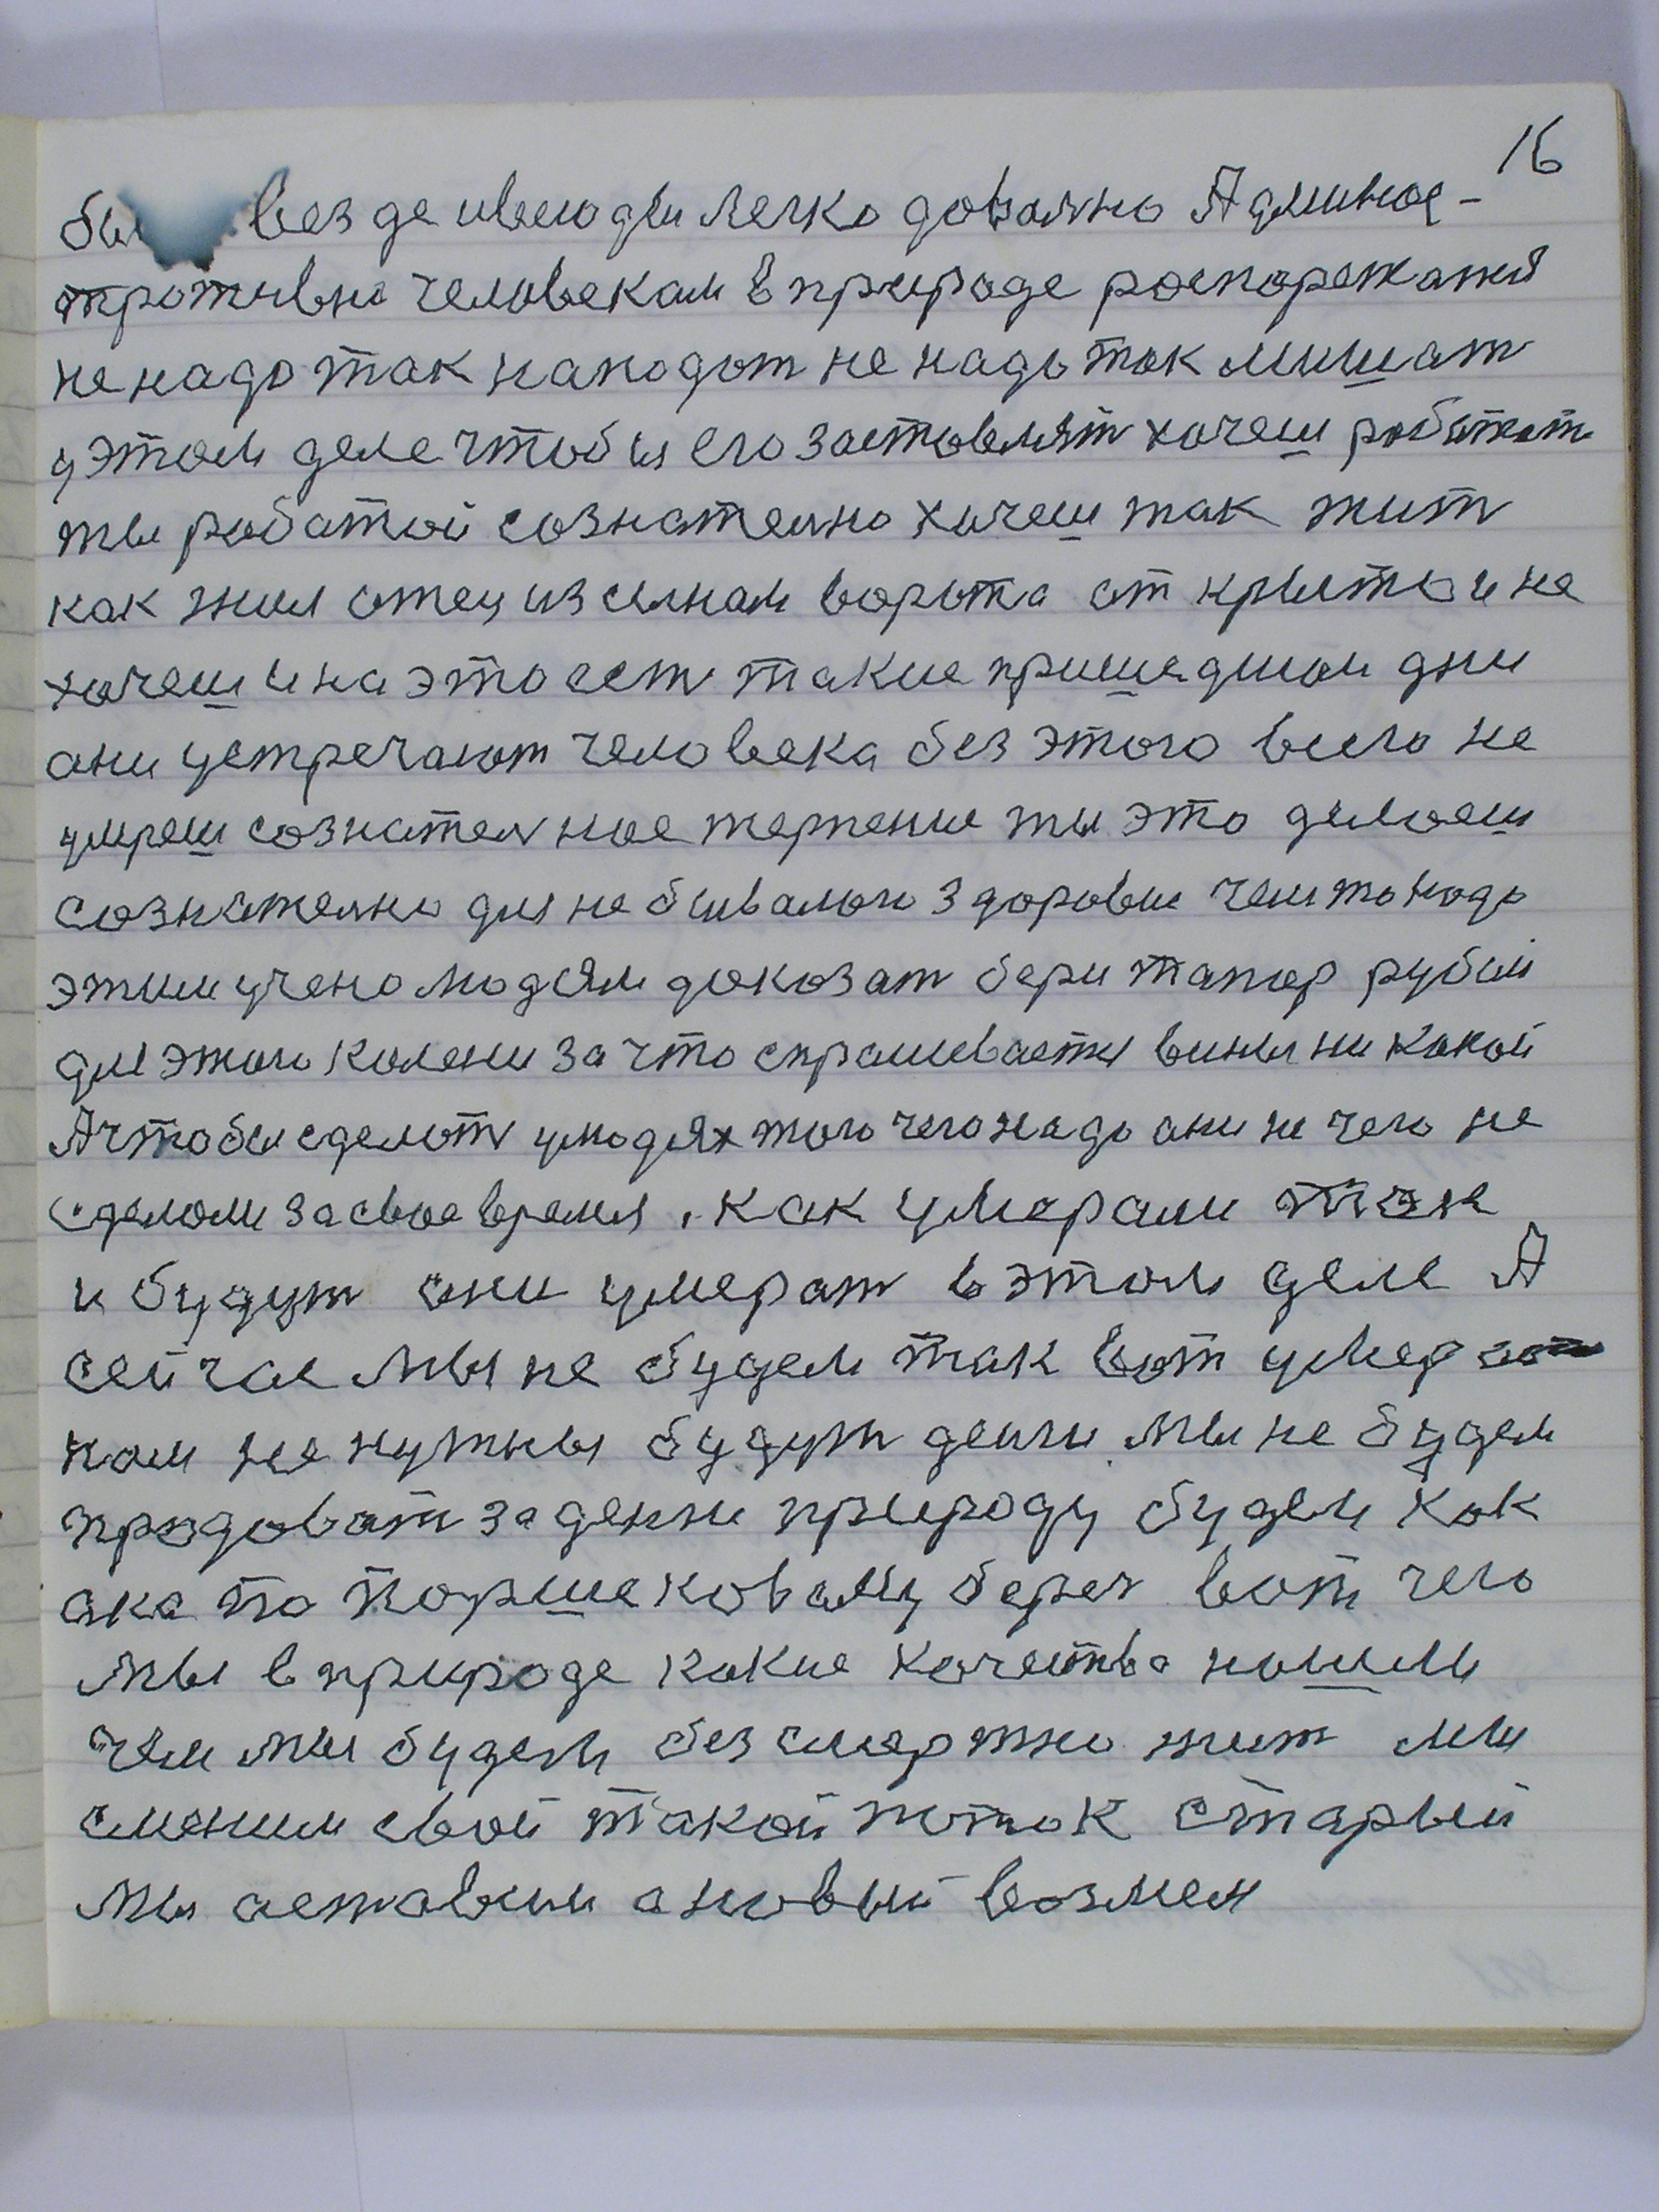 16
везде ивсюды легко доволно Админис-
тротивно человекам в природе роспорежатся
не надо так находит не надо так мишат
у этом деле чтобы его заставлят хочеш работат
ты работой сознателно хочеш так жит
как жил отец из сынам ворота открыто и не
хочеш и на это ест такие пришедшои дни
они устречают человека без этого всего не
умреш сознателное терпение ты это делаеш
сознателно для небывалого здоровье чем то надо
этим учено людям доказат бери тапор рубай
для этого колени за что спрашивается вины никакой
А чтобы сделат у людях того чего надо они не чего не
сделали за свое время. как умерали так
и будут они умерат в этом деле А
сейчас мы не будем так вот умерат
нам не нужны будут денги мы не будем
продоват за денги природу будем как
ока по поршековому берех вот чего
мы в природе какие качества нашли
чем мы будем безсмертно жит мы
сменим свой такой поток старый
мы аставим а новый возмем